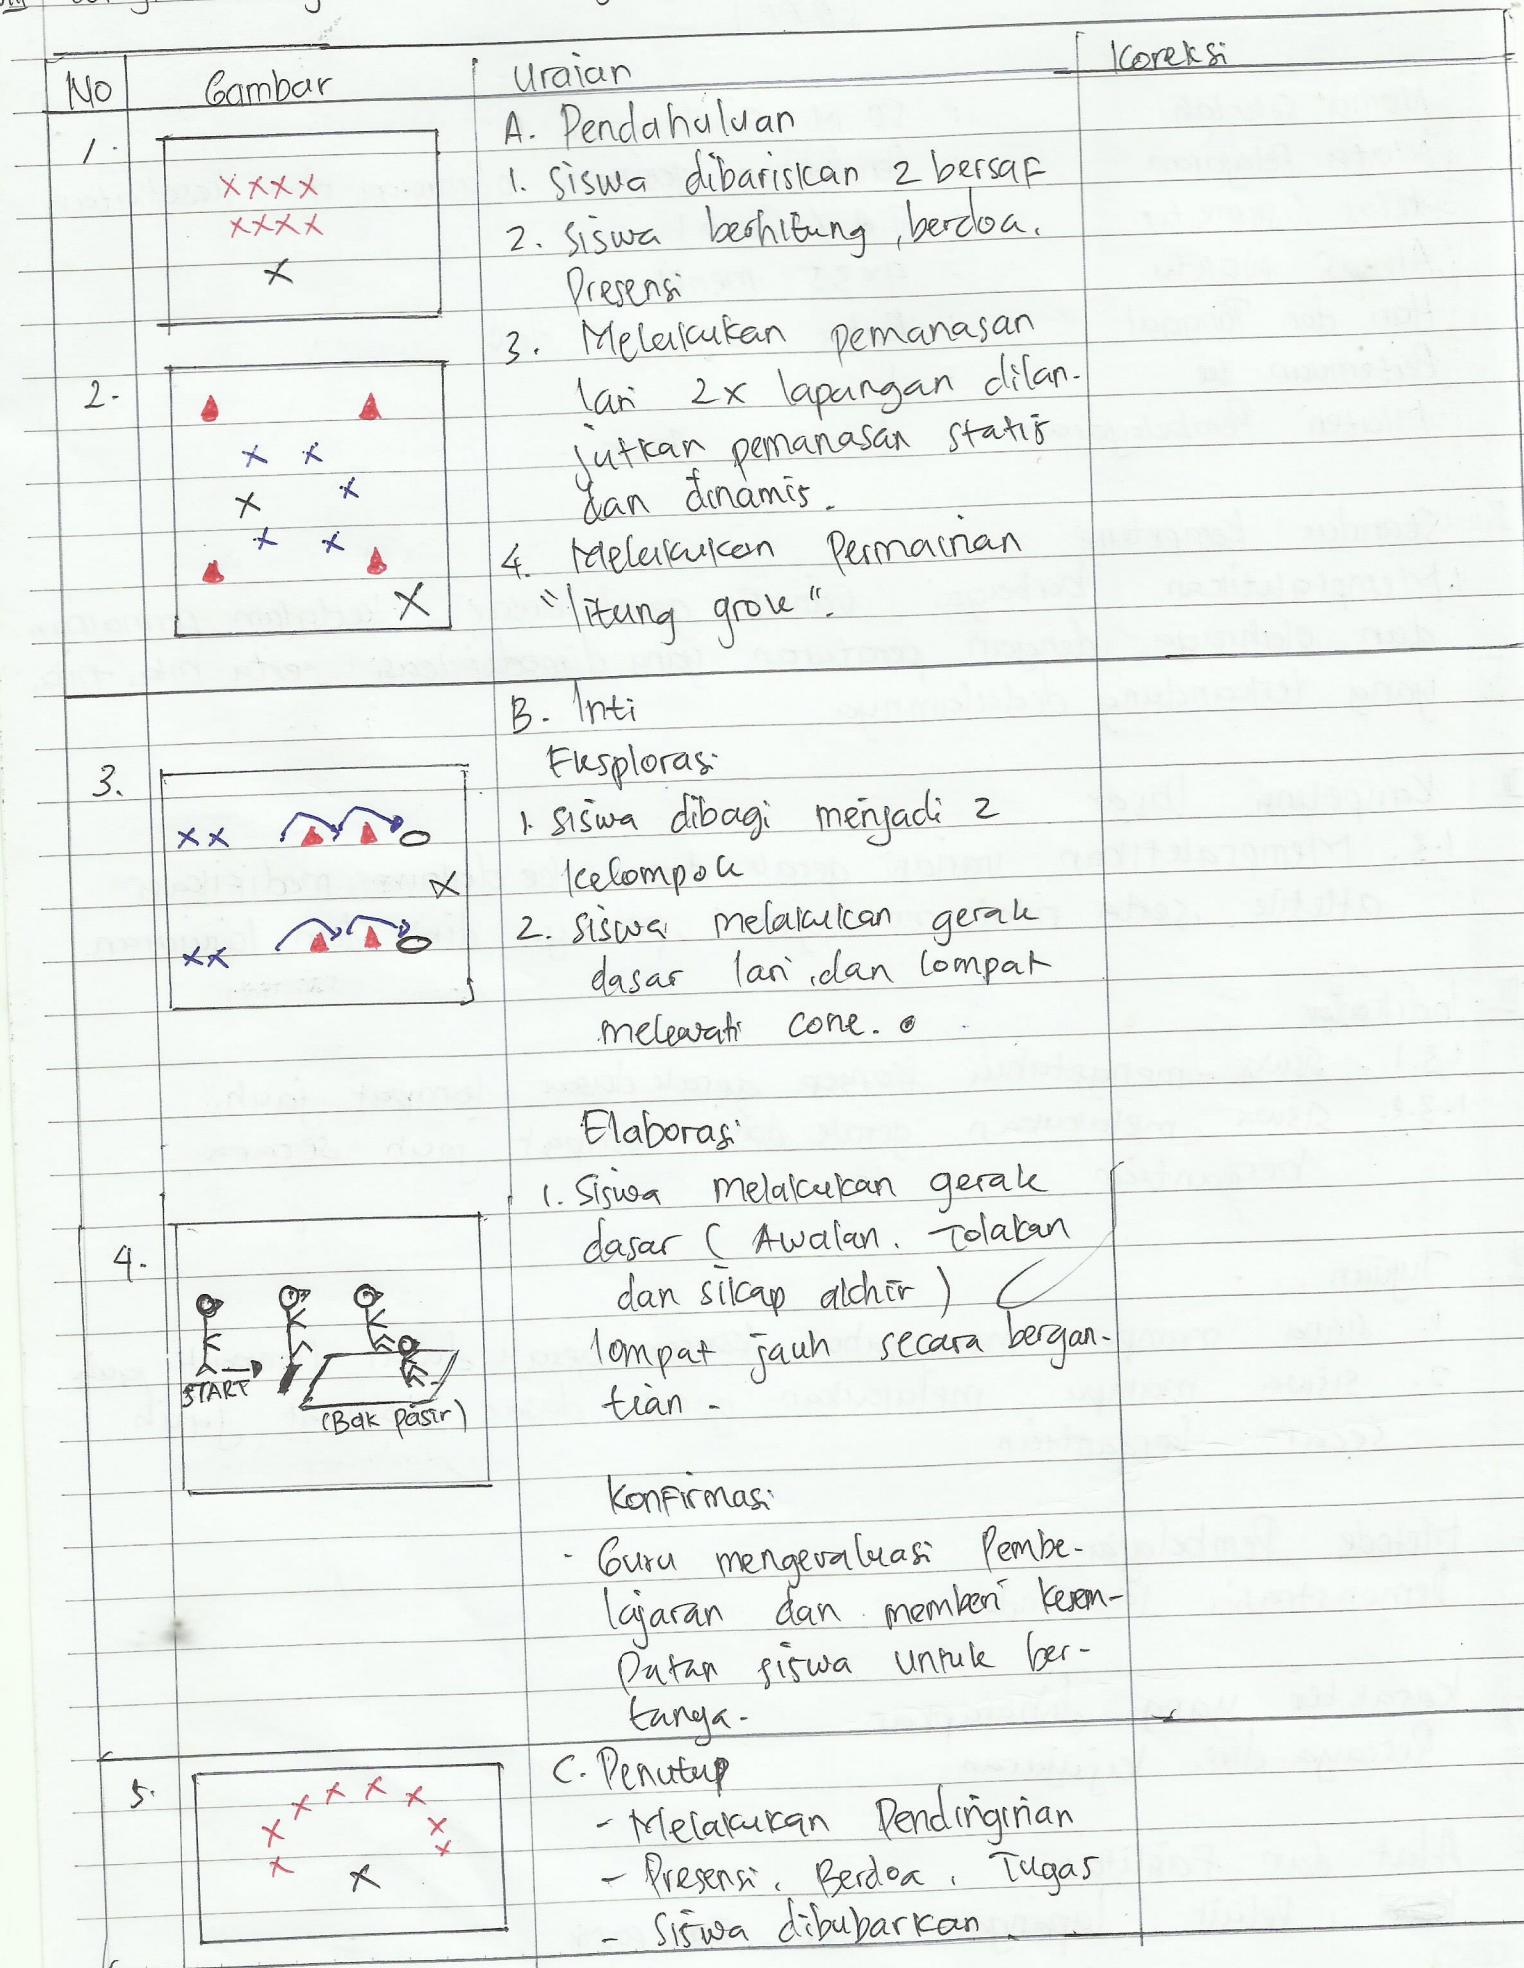 No Gambar Uraian Koreksi
1. A. Pendahuluan
1. Siswa dibariskan 2 bersaf
2. Siswa berhitung, berdoa,
Presensi
3. Melakukan pemanasan
2. lari 2x lapangan dilan-
jutkan pemanasan statis
dan dinamis.
4. Melakukan Permainan
B. Inti
Eksplorasi
3. 1. Siswa dibagi menjadi 2
kelompok
2. Siswa melakukan gerak
dasar lari, dan lompat
melewati cone.
Elaborasi
1. Siswa melakukan gerak
4. dasar (Awalan, Tolakan
dan sikap akhir)
lompat jauh secara bergan-
tian -
START
(Bak pasir)
Konfirmasi
- Guru mengevaluasi Pembe-
lajaran dan memberi kesem-
Patan siswa untuk ber-
tanya-
5. C. Penutup
- Melakukan Pendinginan
- Presensi, Berdoa, Tugas
- Siswa dibubarkan